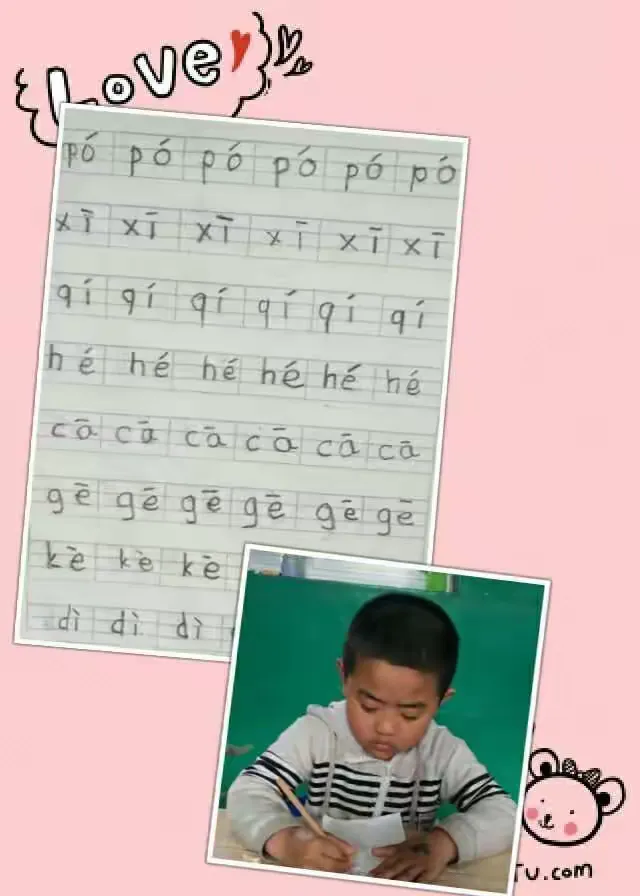 Love
pó pó pó pó pó pó
xī xī xī xī xī xī
qí qí qí qí qí qí
hé hé hé hé hé hé
cā cā cā cā cā cā
gē gē gē gē gē gē
kè kè kè
dì dì dì
TU.com